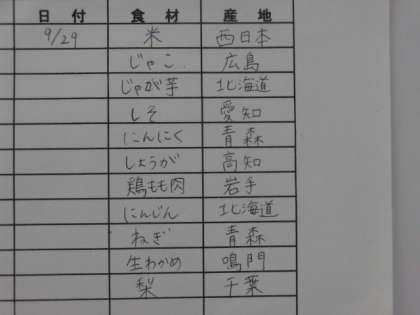 日付 食材 産地
9/29 米 西日本
じゃこ 広島
じゃが芋 北海道
しそ 愛知
にんにく 青森
しょうが 高知
鶏もも肉 岩手
にんじん 北海道
ねぎ 青森
生わかめ 鳴門
梨 千葉